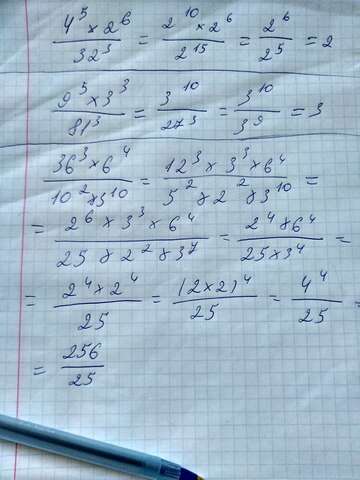 4^5 × 2^6 / 32^3 = 2^10 × 2^6 / 2^15 = 2^6 / 2^5 = 2
9^5 × 3^3 / 81^3 = 3^10 / 27^3 = 3^10 / 3^9 = 3
36^3 × 6^4 / 10^2 × 3^10 = 12^3 × 3^3 × 6^4 / 5^2 × 2^2 × 3^10 =
= 2^6 × 3^3 × 6^4 / 25 × 2^2 × 3^7 = 2^4 × 6^4 / 25 × 3^4 =
= 2^4 × 2^4 / 25 = (2×2)^4 / 25 = 4^4 / 25 =
= 256 / 25